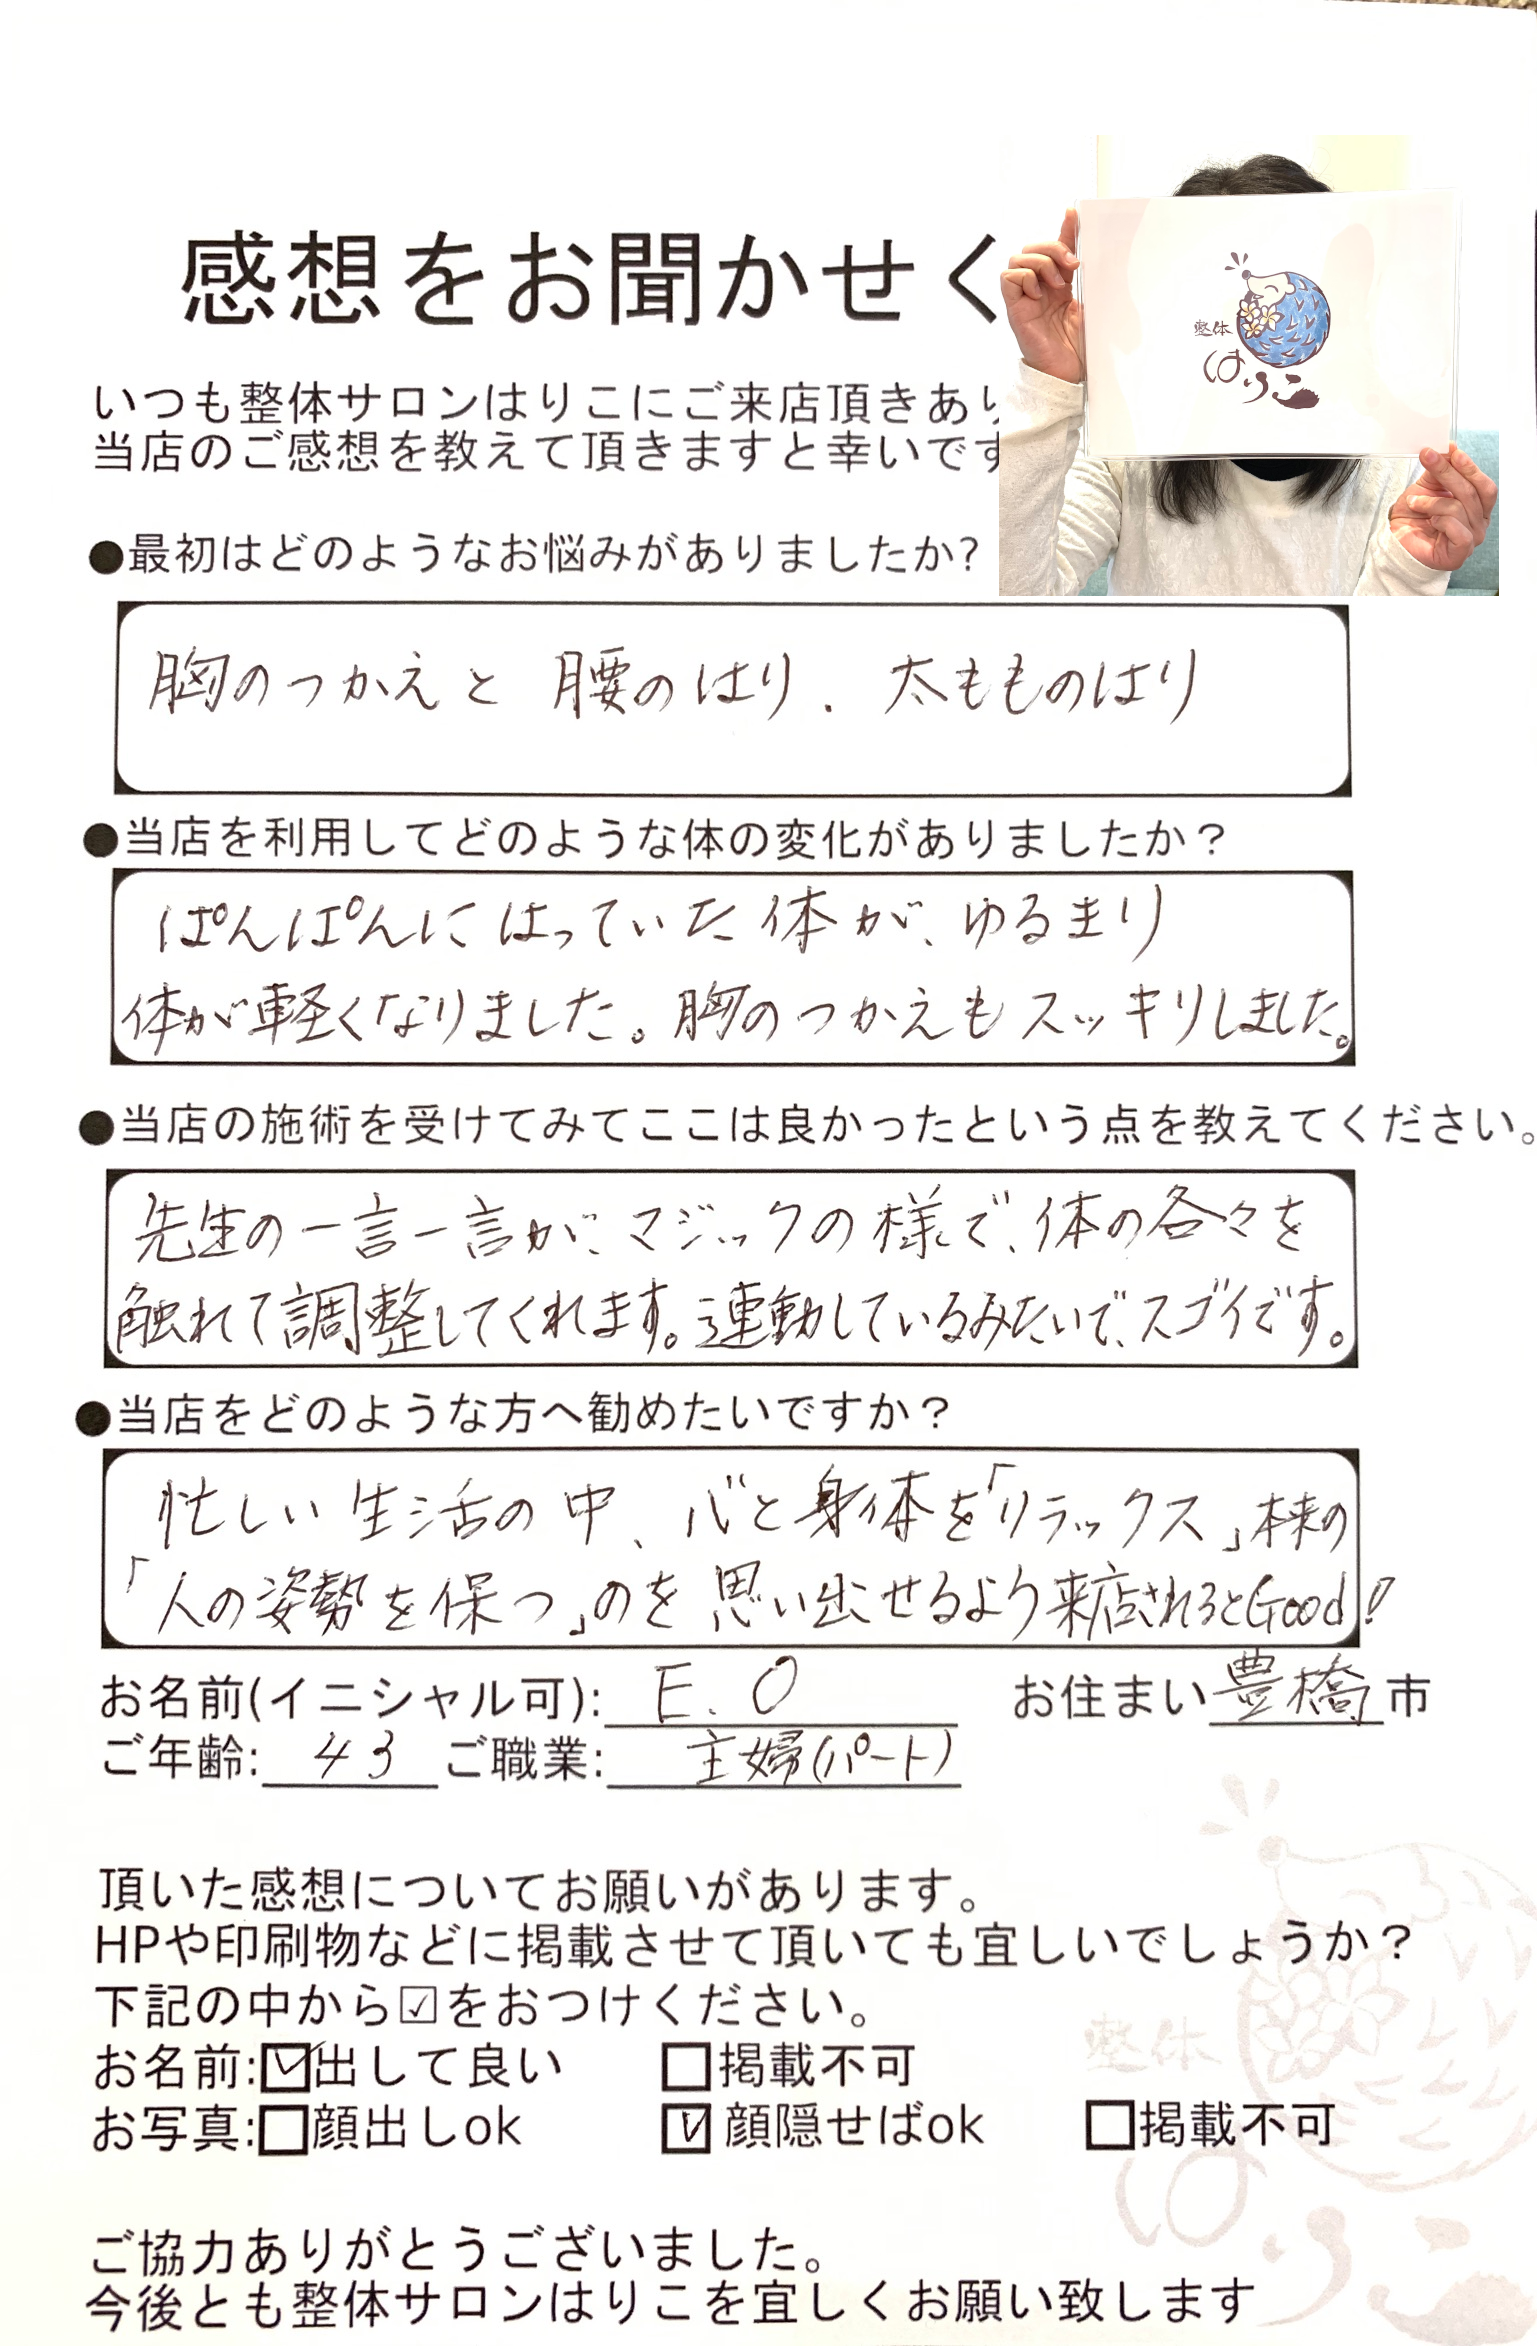 感想をお聞かせく
整体
はりこ
いつも整体サロンはりこにご来店頂きあり
当店のご感想を教えて頂きますと幸いです
●最初はどのようなお悩みがありましたか?
胸のつかえと 腰のはり. 太もものはり
●当店を利用してどのような体の変化がありましたか？
ぱんぱんにはっていた体が、ゆるまり
体が軽くなりました。胸のつかえもスッキリしました。
●当店の施術を受けてみてここは良かったという点を教えてください。
先生の一言一言が、マジックの様で、体の各々を
触れて調整してくれます。運動しているみたいで、スゴイです。
●当店をどのような方へ勧めたいですか？
忙しい生活の中、心と身体を「リラックス」本来の
「人の姿勢を保つ」のを思い出せるよう来店されるとGood!!
お名前(イニシャル可): E.O お住まい豊橋市
ご年齢: 43 ご職業: 主婦(パート)
頂いた感想についてお願いがあります。
HPや印刷物などに掲載させて頂いても宜しいでしょうか？
下記の中から☑をおつけください。
お名前:☑出して良い □掲載不可
お写真:□顔出しok ☑顔隠せばok □掲載不可
整体
はりこ
ご協力ありがとうございました。
今後とも整体サロンはりこを宜しくお願い致します